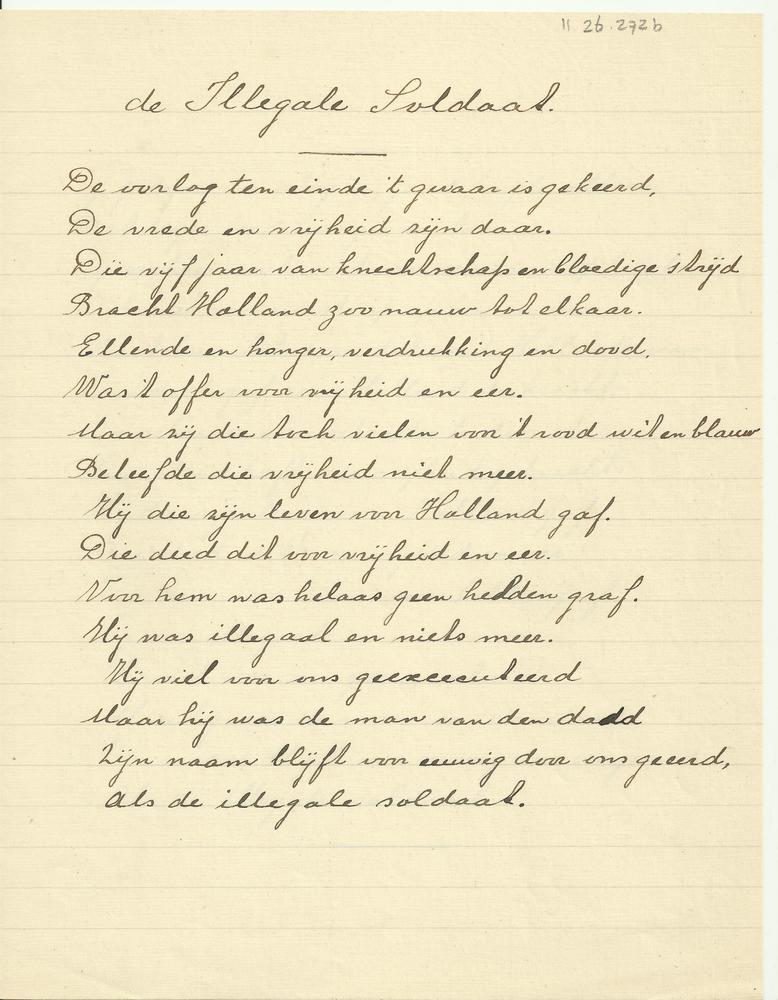 11 26.272b
de Illegale Soldaat.
De oorlog ten einde 't gevaar is gekeerd,
De vrede en vrijheid zijn daar.
Die vijf jaar van knechtschap en bloedige strijd
Bracht Holland zoo nauw tot elkaar.
Ellende en honger, verdrukking en dood,
Was 't offer voor vrijheid en eer.
Maar zij die toch vielen voor 't rood wit en blauw
Beleefde die vrijheid niet meer.
Hij die zijn leven voor Holland gaf.
Die deed dit voor vrijheid en eer.
Voor hem was helaas geen helden graf.
Hij was illegaal en niets meer.
Hij viel voor ons geexecuteerd
Maar hij was de man van den daad
Zijn naam blijft voor eeuwig door ons geeerd,
Als de illegale soldaat.